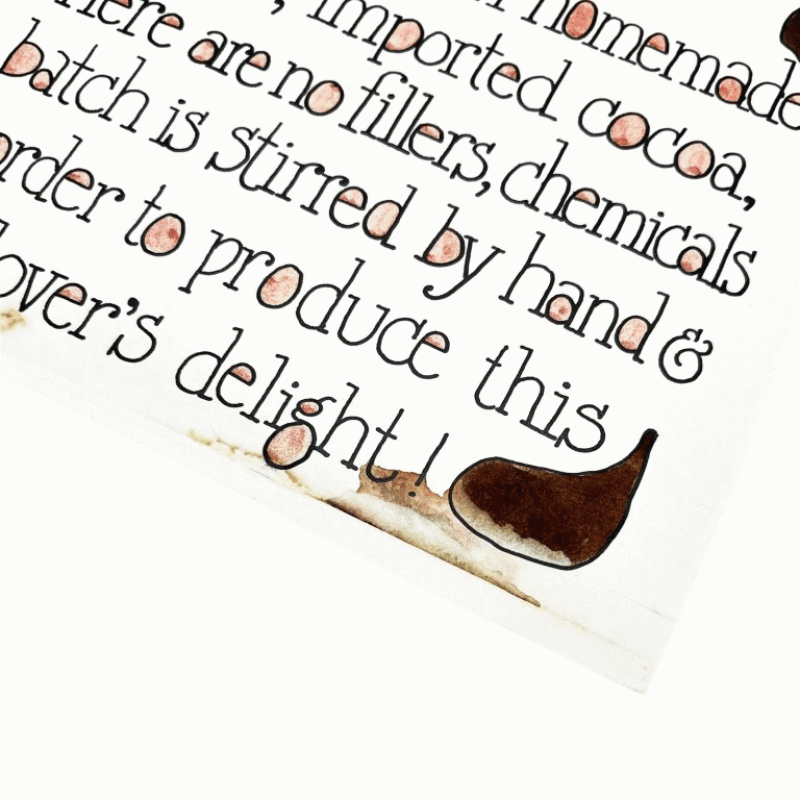 homemade
, imported cocoa,
here are no fillers, chemicals
batch is stirred by hand &
order to produce this
lover's delight!